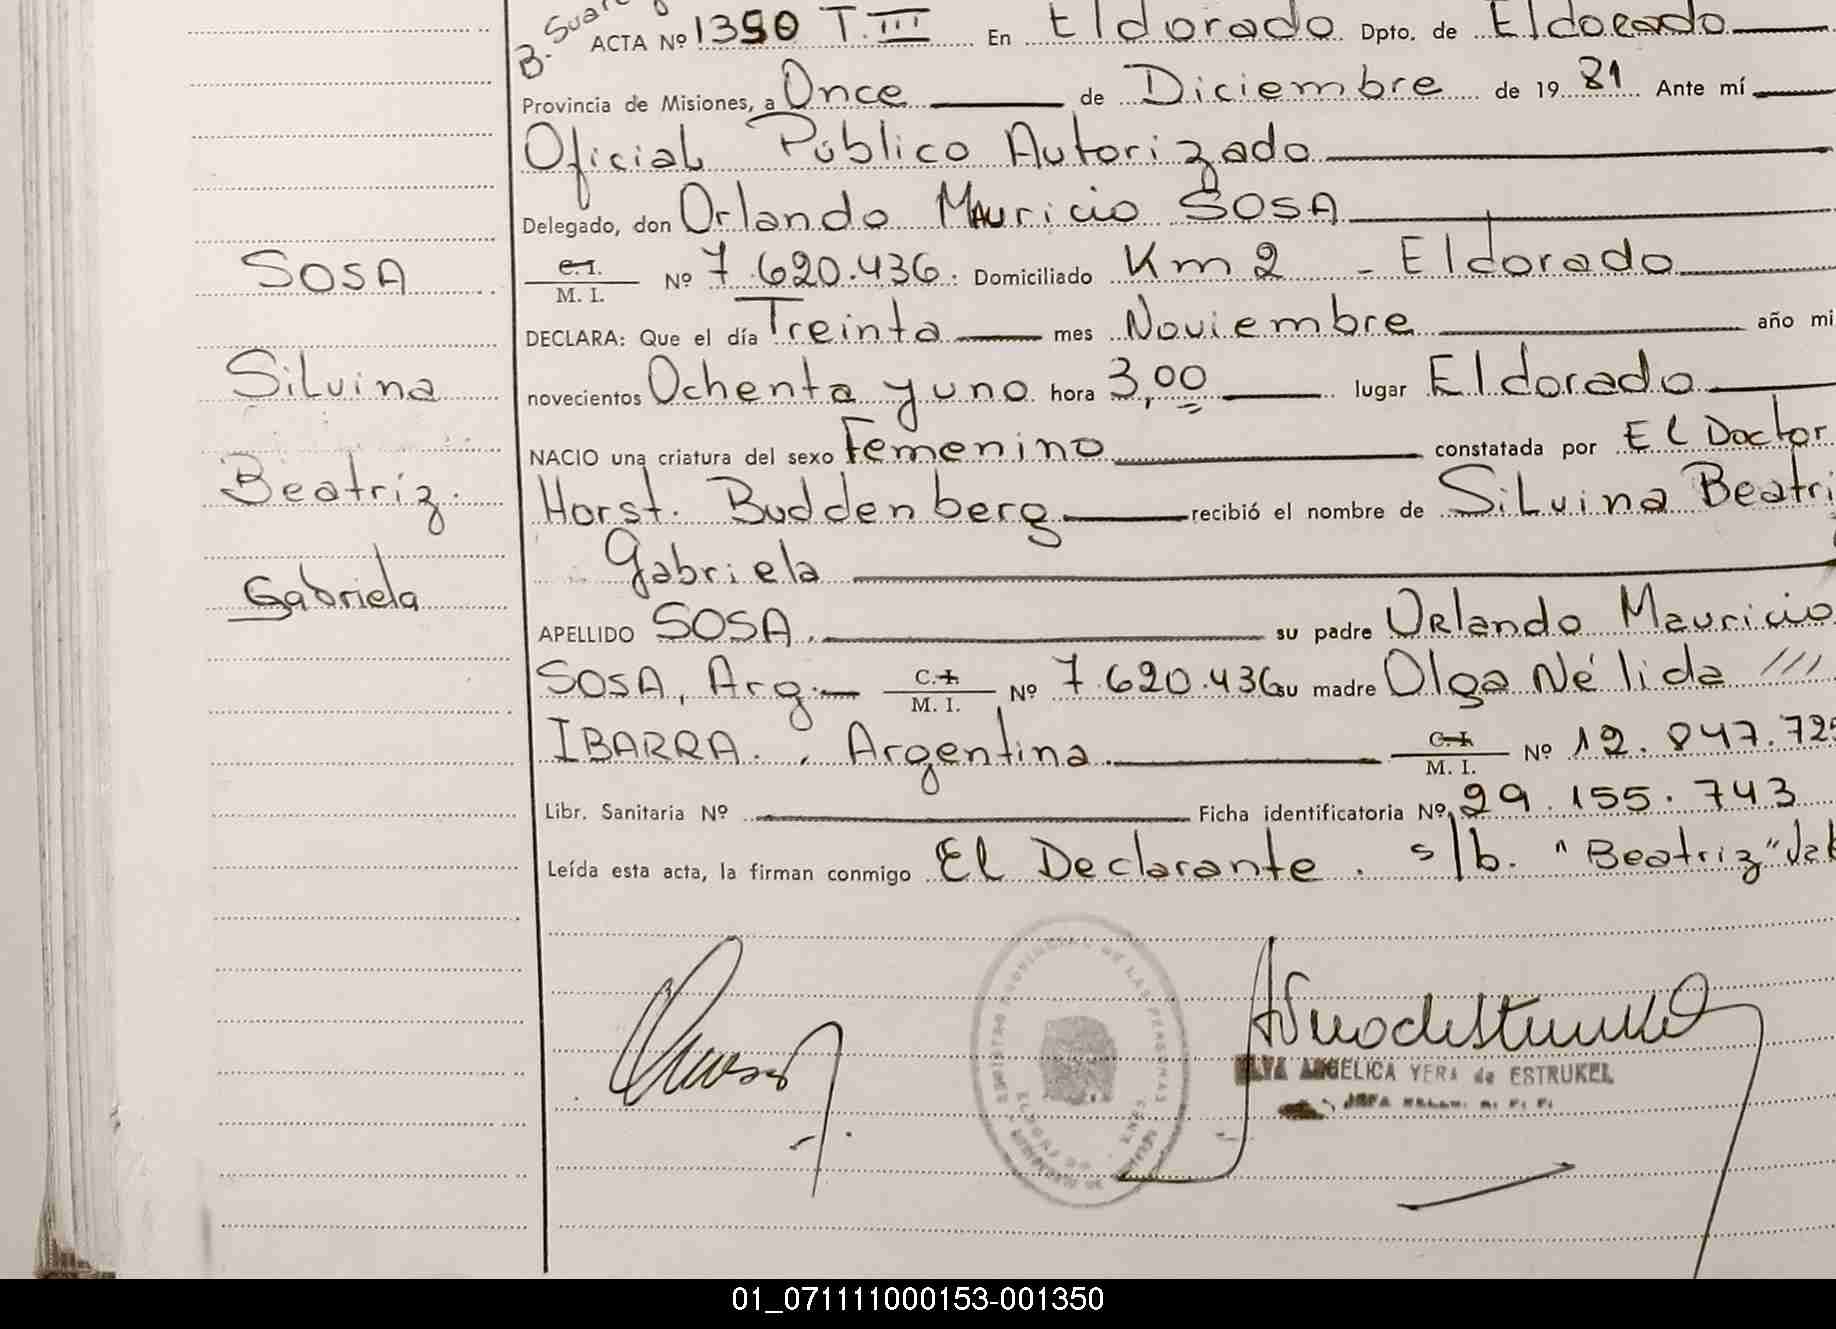 B. Suarez
ACTA Nº 1350 T. III En Eldorado Dpto. de Eldorado
Provincia de Misiones, a Once de Diciembre de 19 81 Ante mí
Oficial Público Autorizado
Delegado, don Orlando Mauricio SOSA
SOSA
C.I. M. I. Nº 7.620.436. Domiciliado Km 2 - Eldorado
DECLARA: Que el día Treinta mes Noviembre año mi
Silvina
novecientos Ochenta y uno hora 3,00 lugar Eldorado
NACIO una criatura del sexo Femenino constatada por El Doctor
Beatriz.
Horst. Buddenberg recibió el nombre de Silvina Beatri
Gabriela
Gabriela
APELLIDO SOSA. su padre Orlando Mauricio
SOSA, Arg.- C.I. M. I. Nº 7.620.436 su madre Olga Nélida ///
IBARRA., Argentina. C.I. M. I. Nº 12.847.725
Libr. Sanitaria Nº Ficha identificatoria Nº 29.155.743
Leída esta acta, la firman conmigo El Declarante. s/b. "Beatriz" Val
REGISTRO PROVINCIAL DE LAS PERSONAS
ELDORADO
ELVA ANGELICA YERA de ESTRUKEL
01_071111000153-001350